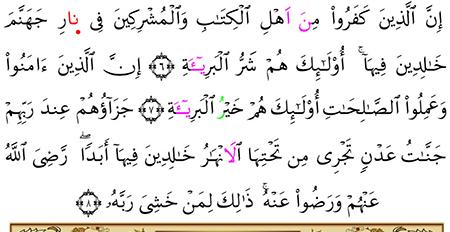 إِنَّ ٱلَّذِينَ كَفَرُوا۟ مِنَ اَهْلِ ٱلْكِتَـٰبِ وَٱلْمُشْرِكِينَ فِى نَارِ جَهَنَّمَ
خَـٰلِدِينَ فِيهَا ۚ أُو۟لَـٰٓئِكَ هُمْ شَرُّ ٱلْبَرِيٓـَٔةِ ﴿٦﴾ إِنَّ ٱلَّذِينَ ءَامَنُوا۟
وَعَمِلُوا۟ ٱلصَّـٰلِحَـٰتِ أُو۟لَـٰٓئِكَ هُمْ خَيْرُ ٱلْبَرِيٓـَٔةِ ﴿٧﴾ جَزَآؤُهُمْ عِندَ رَبِّهِمْ
جَنَّـٰتُ عَدْنٍ تَجْرِى مِن تَحْتِهَا ٱلَانْهَـٰرُ خَـٰلِدِينَ فِيهَآ أَبَدًا ۖ رَّضِىَ ٱللَّهُ
عَنْهُمْ وَرَضُوا۟ عَنْهُ ۚ ذَٰلِكَ لِمَنْ خَشِىَ رَبَّهُۥ ﴿٨﴾